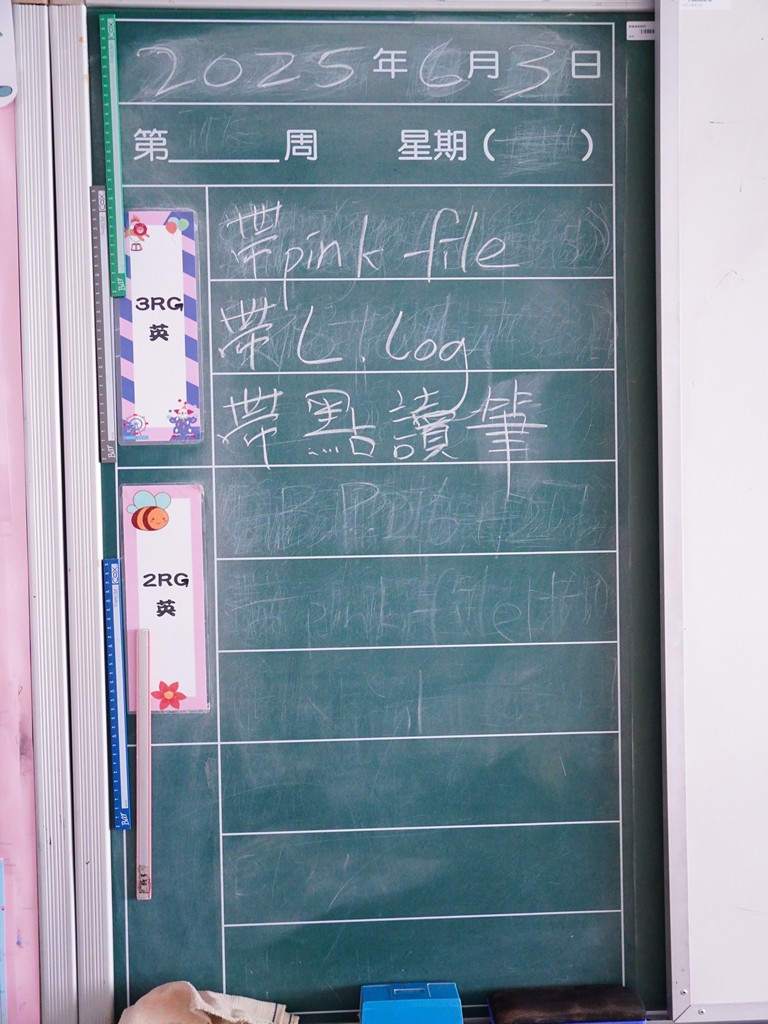 2025年6月3日
第______周 星期( )
3RG
英
帶pink file
帶L.Log
帶點讀筆
2RG
英
pink file